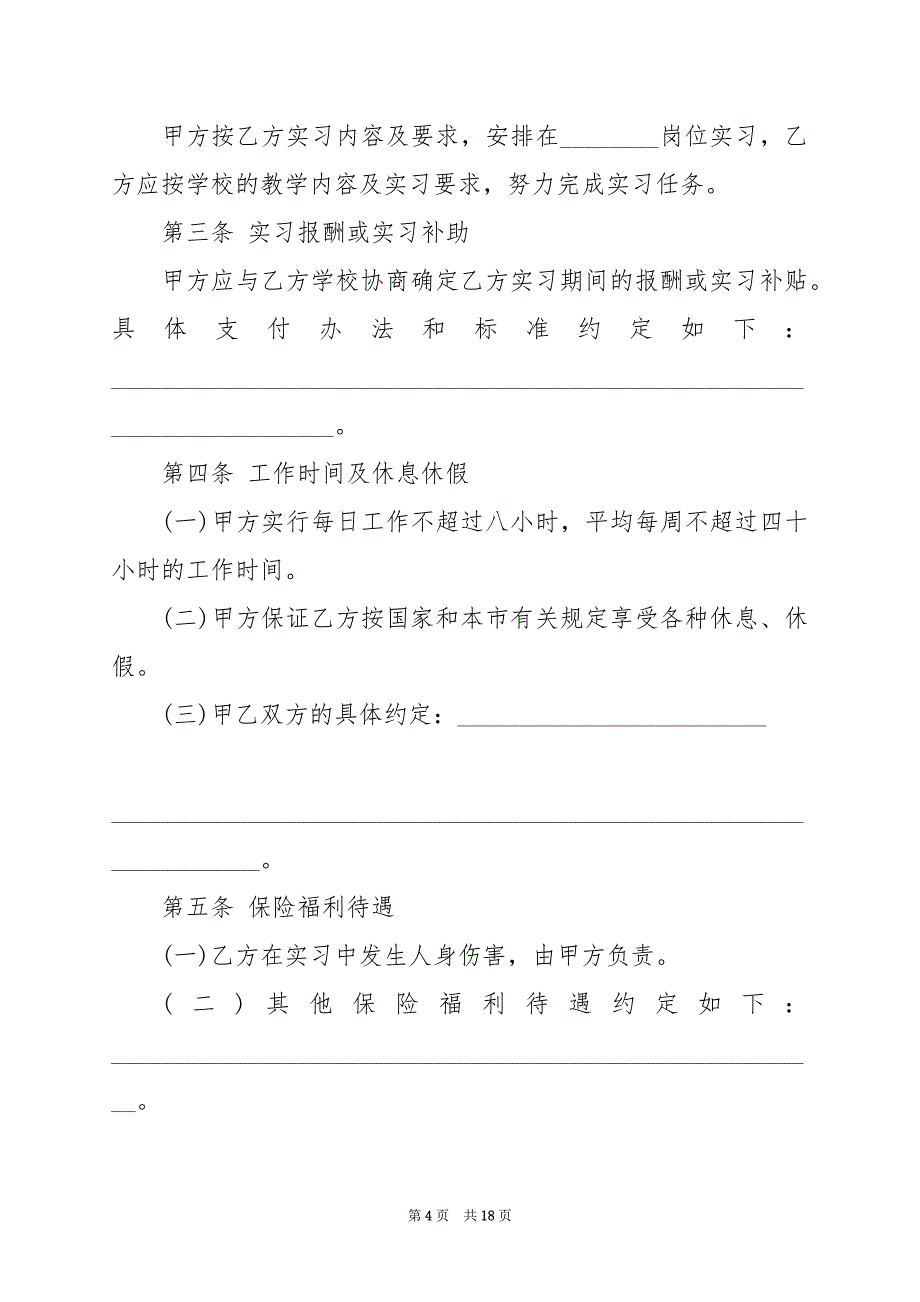 甲方按乙方实习内容及要求，安排在________岗位实习，乙
方应按学校的教学内容及实习要求，努力完成实习任务。
第三条 实习报酬或实习补助
甲方应与乙方学校协商确定乙方实习期间的报酬或实习补贴。
具体支付办法和标准约定如下：
________________________________________________________
__________________。
第四条 工作时间及休息休假
(一)甲方实行每日工作不超过八小时，平均每周不超过四十
小时的工作时间。
(二)甲方保证乙方按国家和本市有关规定享受各种休息、休
假。
(三)甲乙双方的具体约定：_________________________
________________________________________________________
____________。
第五条 保险福利待遇
(一)乙方在实习中发生人身伤害，由甲方负责。
(二)其他保险福利待遇约定如下：
________________________________________________________
__。
第 4 页 共 18 页